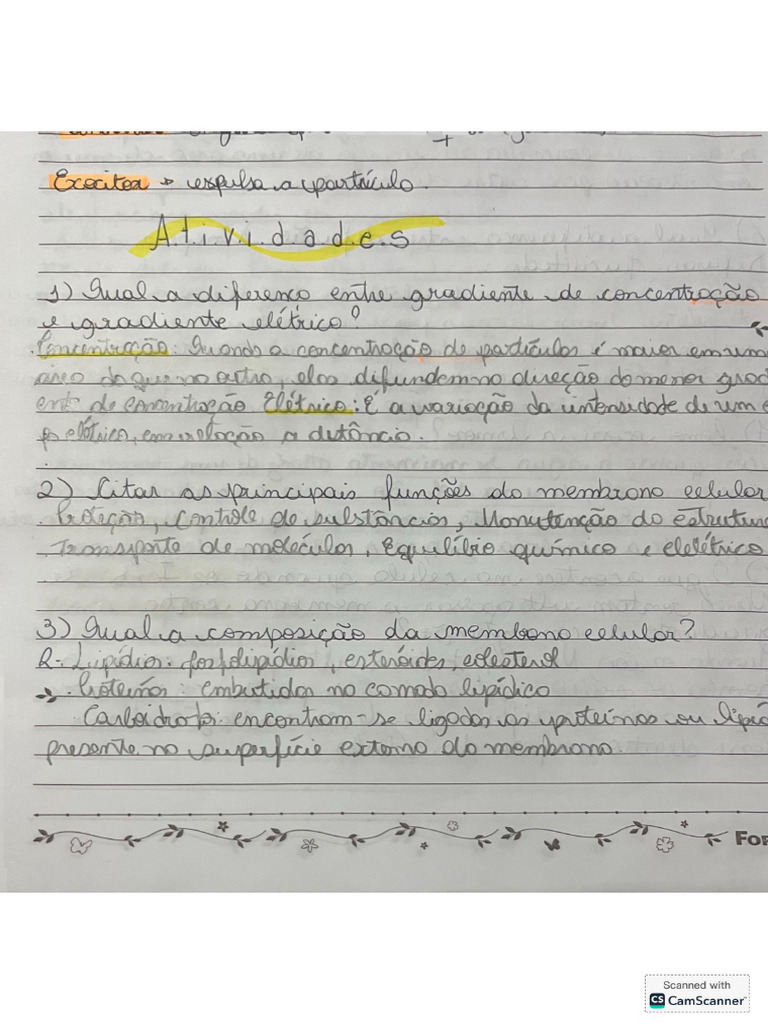 Exocitox → expulsa a partículo.
A.t.i.v.i.d.a.d.e.s
1) Qual a diferenço entre gradiente de concentração
e gradiente elétrico?
Concentração: Quando a concentração de partículos é maior em um
área do que no outro, elos difundem no direção do menor grad
ente de concentração Elétrico: É a variação da intensidade de um c
po elétrico, em relação a distância.
2) Citar as principais funções do membrono celular
Proteção, controle de substâncios, Manutenção do estrutura
Transporte de moléculos, Equilíbrio químico e elelétrico
3) Qual a composição da membono celular?
R- Lipídios: fosfolipídios, esteróides, colesterol
Proteínos: embutidos no comodo lipídico
Carboidratos: encontram-se ligados os proteínos ou lipíd
presente no superfície externo do membrono.
For
Scanned with
CS CamScanner